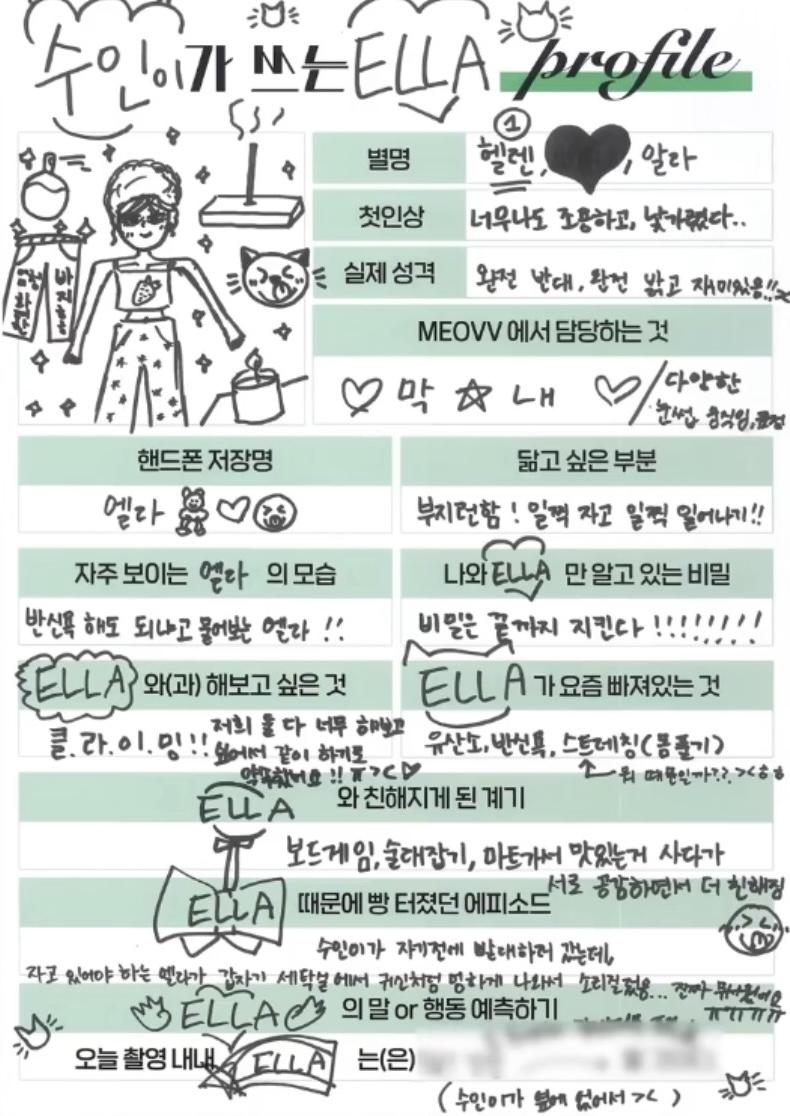 수인이가 쓰는 ELLA profile
별명
① 헬렌, , 알라
첫인상
너무나도 조용하고, 낯가렸다..
실제 성격
완전 반대, 완전 밝고 재미있음!!
MEOVV 에서 담당하는 것
막 내 / 다양한
눈썹, 움직임, 표정
핸드폰 저장명
엘라
닮고 싶은 부분
부지런함! 일찍 자고 일찍 일어나기!!
자주 보이는 엘라 의 모습
반신욕 해도 되냐고 물어보는 엘라 !!
나와 ELLA 만 알고 있는 비밀
비밀은 끝까지 지킨다 !!!!!!!!
ELLA 와(과) 해보고 싶은 것
클.라.이.밍!! 저희 둘 다 너무 해보고
싶어서 같이 하기로
약속했어요 !! ㅠ><
ELLA 가 요즘 빠져있는 것
유산소, 반신욕, 스트레칭(몸풀기)
뭐 때문일까?? ><ㅎㅎ
ELLA 와 친해지게 된 계기
보드게임, 술래잡기, 마트가서 맛있는거 사다가
서로 공감하면서 더 친해짐
ELLA 때문에 빵 터졌던 에피소드
수인이가 자기전에 빨래하러 갔는데,
자고 있어야 하는 엘라가 갑자기 세탁실에서 귀신처럼 멍하게 나와서 소리질렀음... 진짜 무서웠어요
ㅠㅠㅠㅠ
ELLA 의 말 or 행동 예측하기
오늘 촬영 내내 ELLA 는(은)
(수인이가 옆에 없어서 ><)